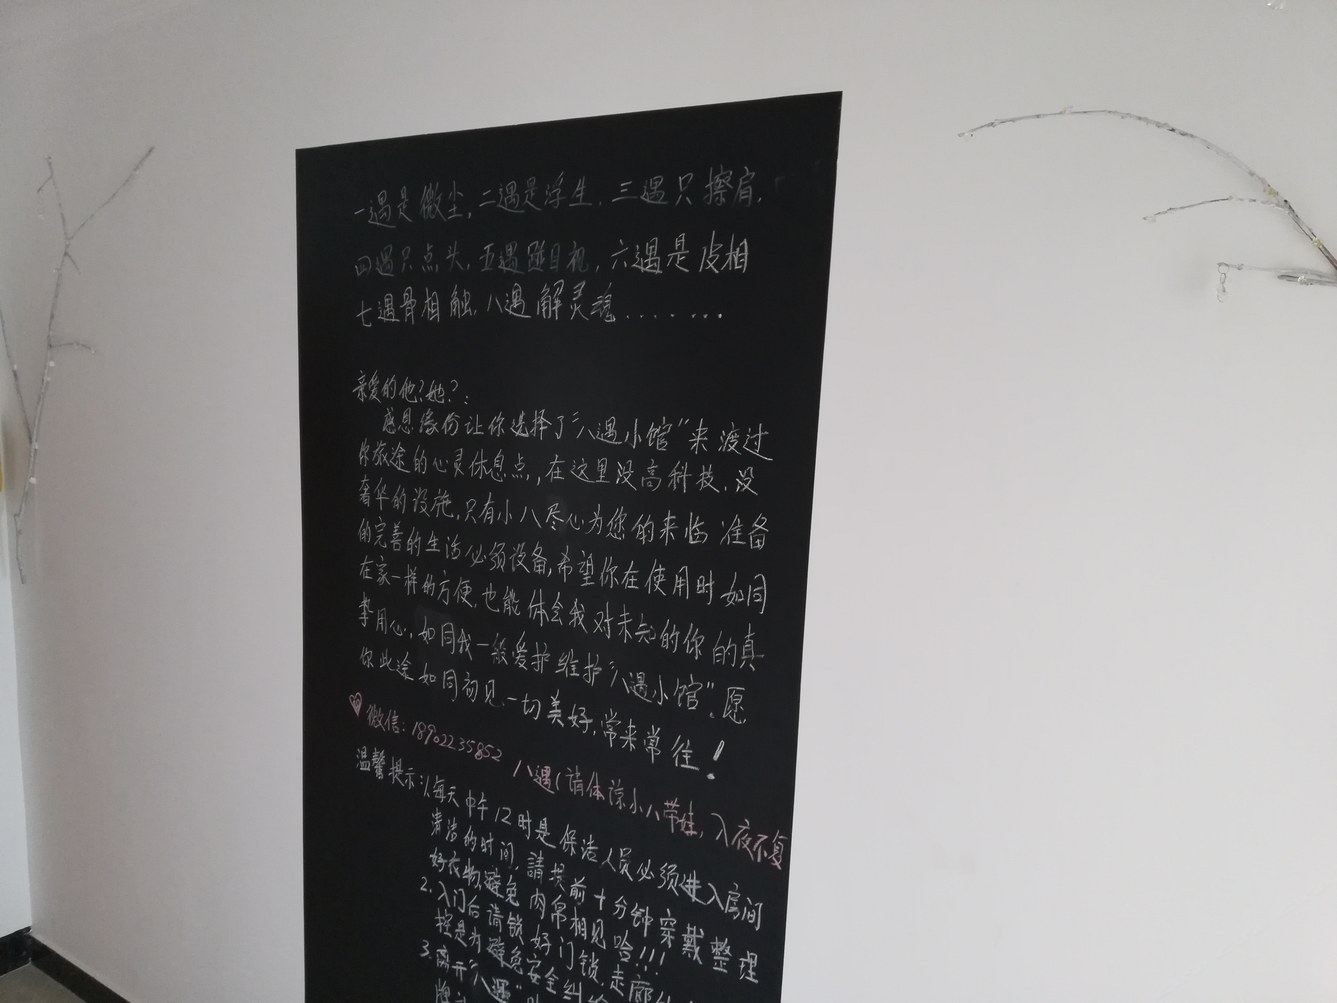 一遇是微尘，二遇是浮生，三遇只擦肩，
四遇只点头，五遇碰目机，六遇是皮相
七遇骨相触，八遇解灵魂.......
亲爱的他？她？：
感恩缘份让你选择了“八遇小馆”来渡过
你旅途的心灵休息点，在这里没高科技，没
奢华的设施，只有小八尽心为您的来临准备
的完善的生活必须设备，希望你在使用时如同
在家一样的方便，也能体会我对未知的你的真
挚用心，如同我一般爱护维护“八遇小馆”，愿
你此途如同初见一切美好，常来常往！
微信：18902235852 八遇（请体谅小八带娃，入夜不复
温馨提示：1.每天中午12时是保洁人员必须进入房间
清洁的时间，請提前十分钟穿戴整理
好衣物，避免肉帛相见哈!!!
2.入门后请锁好门锁，走廊
控是为避免安全纠纷
3.离开“八遇”